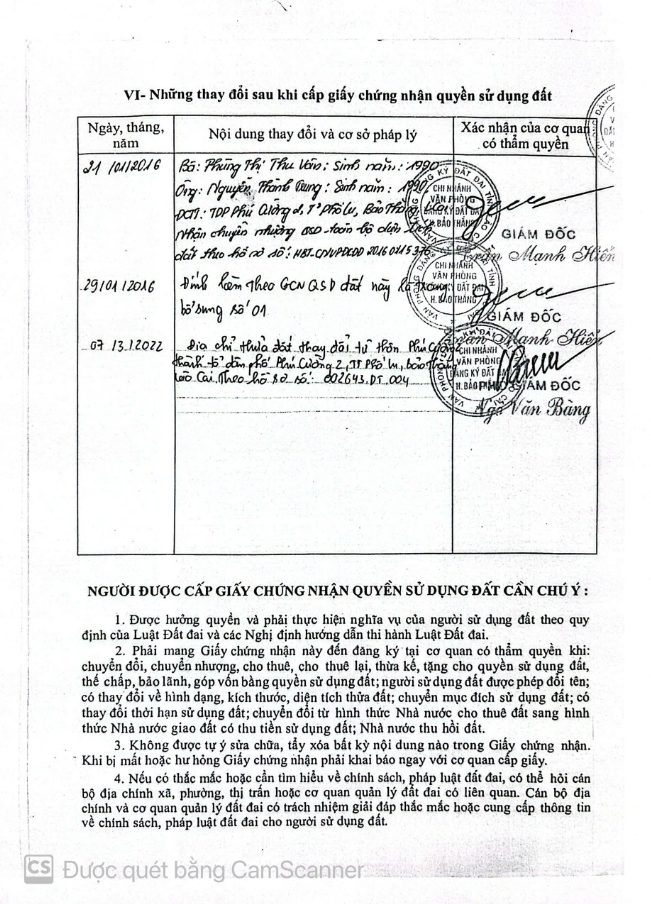 VI- Những thay đổi sau khi cấp giấy chứng nhận quyền sử dụng đất
Ngày, tháng, năm
Nội dung thay đổi và cơ sở pháp lý
Xác nhận của cơ quan có thẩm quyền
21/01/2016
Bà: Phùng Thị Thu Vân; Sinh năm: 1990
Ông: Nguyễn Thành Trung; Sinh năm: 1990
ĐCTT: TDP Phú Cường 2, TT Phố Lu, Bảo Thắng
Nhận chuyển nhượng QSD toàn bộ diện tích
đất theo hồ sơ số:
CHI NHÁNH
VĂN PHÒNG
ĐĂNG KÝ ĐẤT ĐAI
H. BẢO THẮNG
GIÁM ĐỐC
Trần Mạnh Hiển
29/01/2016
Đính kèm theo GCN QSD đất này là trang
bổ sung số 01
CHI NHÁNH
VĂN PHÒNG
ĐĂNG KÝ ĐẤT ĐAI
H. BẢO THẮNG
GIÁM ĐỐC
Trần Mạnh Hiển
07/3/2022
Địa chỉ thửa đất thay đổi từ thôn Phú Cường
thành tổ dân phố Phú Cường 2, TT Phố Lu, Bảo Thắng
Lào Cai. Theo hồ sơ số: 002643.DT.004
CHI NHÁNH
VĂN PHÒNG
ĐĂNG KÝ ĐẤT ĐAI
H. BẢO THẮNG
PHÓ GIÁM ĐỐC
Ngô Văn Bàng
NGƯỜI ĐƯỢC CẤP GIẤY CHỨNG NHẬN QUYỀN SỬ DỤNG ĐẤT CẦN CHÚ Ý :
1. Được hưởng quyền và phải thực hiện nghĩa vụ của người sử dụng đất theo quy
định của Luật Đất đai và các Nghị định hướng dẫn thi hành Luật Đất đai.
2. Phải mang Giấy chứng nhận này đến đăng ký tại cơ quan có thẩm quyền khi:
chuyển đổi, chuyển nhượng, cho thuê, cho thuê lại, thừa kế, tặng cho quyền sử dụng đất,
thế chấp, bảo lãnh, góp vốn bằng quyền sử dụng đất; người sử dụng đất được phép đổi tên;
có thay đổi về hình dạng, kích thước, diện tích thửa đất; chuyển mục đích sử dụng đất; có
thay đổi thời hạn sử dụng đất; chuyển đổi từ hình thức Nhà nước cho thuê đất sang hình
thức Nhà nước giao đất có thu tiền sử dụng đất; Nhà nước thu hồi đất.
3. Không được tự ý sửa chữa, tẩy xóa bất kỳ nội dung nào trong Giấy chứng nhận.
Khi bị mất hoặc hư hỏng Giấy chứng nhận phải khai báo ngay với cơ quan cấp giấy.
4. Nếu có thắc mắc hoặc cần tìm hiểu về chính sách, pháp luật đất đai, có thể hỏi cán
bộ địa chính xã, phường, thị trấn hoặc cơ quan quản lý đất đai có liên quan. Cán bộ địa
chính và cơ quan quản lý đất đai có trách nhiệm giải đáp thắc mắc hoặc cung cấp thông tin
về chính sách, pháp luật đất đai cho người sử dụng đất.
CS Được quét bằng CamScanner